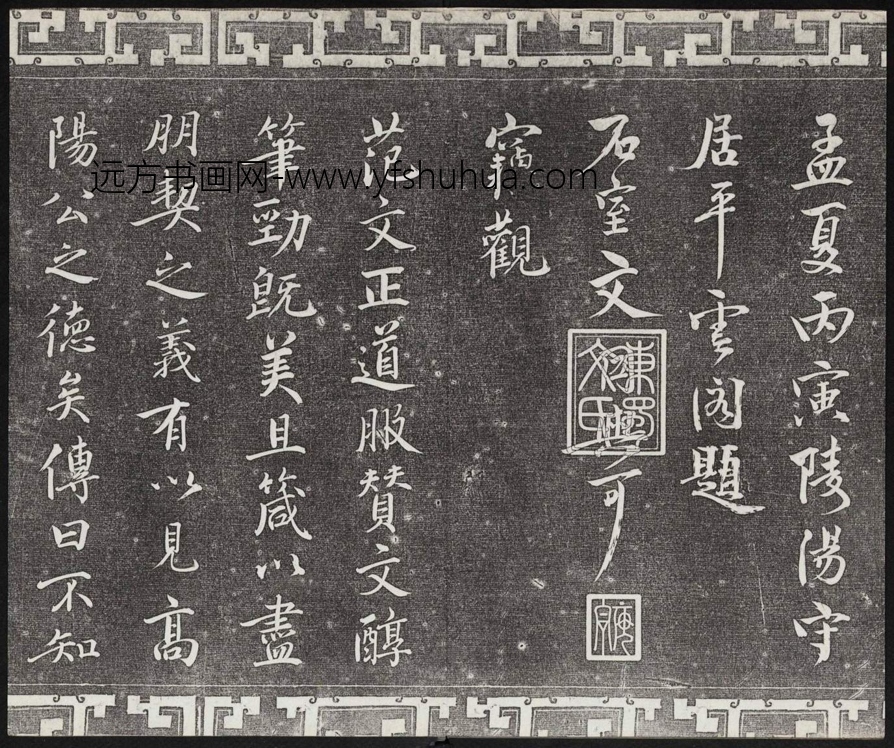 孟夏丙寅陵陽守
居平雲閣題
石室文與可
竊觀
范文正道服贊文醇
筆勁既美且箴以盡
朋契之義有以見高
陽公之德矣傳曰不知
東蜀文氏
远方书画网-www.yfshuhua.com